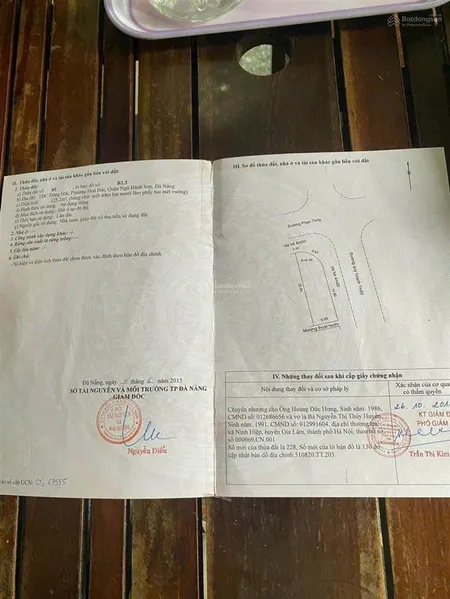 Batdongsan
II. Thửa đất, nhà ở và tài sản khác gắn liền với đất
1. Thửa đất:
a) Thửa đất số: 05 , tờ bản đồ số: B2.3
Quận Ngũ Hành Sơn, Đà Nẵng
c) Diện tích: 125,2m²,
d) Hình thức sử dụng: Sử dụng riêng
đ) Mục đích sử dụng: Đất ở tại đô thị
e) Thời hạn sử dụng: Lâu dài
g) Nguồn gốc sử dụng: Nhà nước giao đất có thu tiền sử dụng đất
2. Nhà ở: -/-
3. Công trình xây dựng khác: -/-
4. Rừng sản xuất là rừng trồng: -/-
5. Cây lâu năm: -/-
6. Ghi chú:
Số hiệu và diện tích thửa đất chưa được xác định theo bản đồ địa chính
Đà Nẵng, ngày tháng năm 2015
SỞ TÀI NGUYÊN VÀ MÔI TRƯỜNG TP ĐÀ NẴNG
GIÁM ĐỐC
Nguyễn Điểu
Số vào sổ cấp GCN:
III. Sơ đồ thửa đất, nhà ở và tài sản khác gắn liền với đất
Đường Phan Tòng
Mương thoát nước
IV. Những thay đổi sau khi cấp giấy chứng nhận
Nội dung thay đổi và cơ sở pháp lý
Xác nhận của cơ qua
có thẩm quyền
Chuyển nhượng cho Ông Hoàng Đức Hưng, Sinh năm: 1986,
CMND số: 012686656 và vợ là Bà Nguyễn Thị Thúy Huyền
Sinh năm: 1991, CMND số: 012991604, địa chỉ thường trú
xã Ninh Hiệp, huyện Gia Lâm, thành phố Hà Nội, theo hồ sơ
số 000069.CN.001
Số mới của thửa đất là 228, Số mới của tờ bản đồ là 130 do
cập nhật bản đồ địa chính 510820.TT.203
26. 10. 201
KT GIÁM Đ
PHÓ GIÁM
Trần Thị Kim